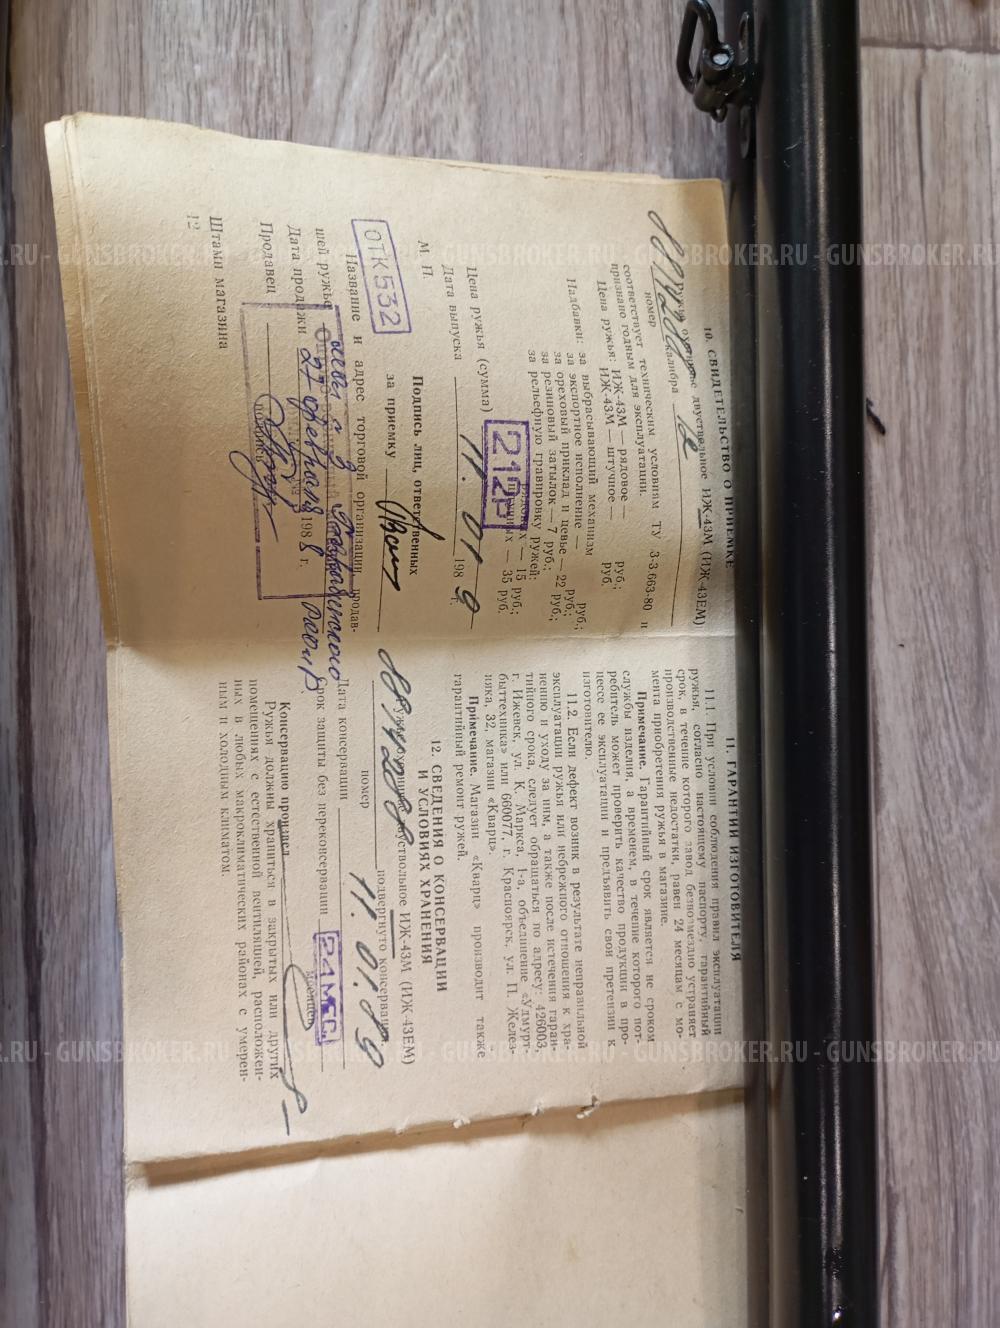 10. СВИДЕТЕЛЬСТВО О ПРИЕМКЕ
Ружье охотничье двуствольное ИЖ-43М (ИЖ-43ЕМ)
номер калибра 12
соответствует техническим условиям ТУ 3-3.663-80 и
признано годным для эксплуатации.
Цена ружья: ИЖ-43М — рядовое — руб.;
ИЖ-43М — штучное — руб.
Надбавки: за выбрасывающий механизм руб.;
за экспортное исполнение — руб.;
за ореховый приклад и цевье — 22 руб.;
за резиновый затылок — 7 руб.;
за рельефную гравировку ружей:
рядовых — 15 руб.;
штучных — 35 руб.
Цена ружья (сумма) 212р
Дата выпуска 11. 01 1989 г.
М. П. Подпись лиц, ответственных
за приемку
ОТК532
Название и адрес торговой организации, продав-
шей ружье
Дата продажи 27 февраля 198 г.
Продавец
Штамп магазина
12
11. ГАРАНТИИ ИЗГОТОВИТЕЛЯ
11.1. При условии соблюдения правил эксплуатации
ружья, согласно настоящему паспорту, гарантийный
срок, в течение которого завод безвозмездно устраняет
производственные недостатки, равен 24 месяцам с мо-
мента приобретения ружья в магазине.
Примечание. Гарантийный срок является не сроком
службы изделия, а временем, в течение которого пот-
ребитель может проверить качество продукции в про-
цессе ее эксплуатации и предъявить свои претензии к
изготовителю.
11.2. Если дефект возник в результате неправильной
эксплуатации ружья или небрежного отношения к хра-
нению и уходу за ним, а также после истечения гаран-
тийного срока, следует обращаться по адресу: 426003,
г. Ижевск, ул. К. Маркса, 1-а, объединение «Удмурт-
быттехника» или 660077, г. Красноярск, ул. П. Желез-
няка, 32, магазин «Кварц».
Примечание. Магазин «Кварц» производит также
гарантийный ремонт ружей.
12. СВЕДЕНИЯ О КОНСЕРВАЦИИ
И УСЛОВИЯХ ХРАНЕНИЯ
Ружье охотничье двуствольное ИЖ-43М (ИЖ-43ЕМ)
номер подвергнуто консервации.
Дата консервации 11. 01. 89
Срок защиты без переконсервации 24 МЕС.
месяцев
Консервацию произвел
Ружья должны храниться в закрытых или других
помещениях с естественной вентиляцией, расположен-
ных в любых макроклиматических районах с умерен-
ным и холодным климатом.
GUNSBROKER.RU - GUNSBROKER.RU - GUNSBROKER.RU
GUNSBROKER.RU - GUNSBROKER.RU - GUNSBROKER.RU